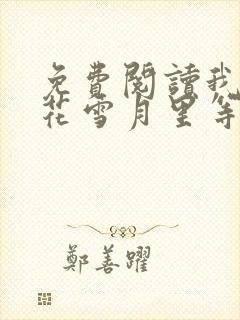 免費閱讀我
花雪月里等
鄭善躍